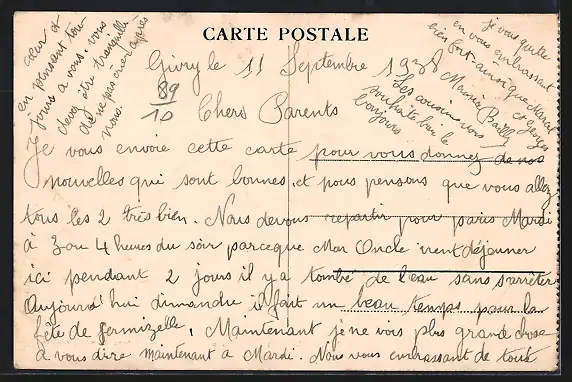 CARTE POSTALE
Givry le 11 Septembre 1938
89
10
Chers Parents
Je vous envoie cette carte pour vous donner de nos
nouvelles qui sont bonnes, et nous pensons que vous allez
tous les 2 très bien. Nous devons repartir pour paris Mardi
à 3 ou 4 heures du soir parceque Mon Oncle vient déjeuner
ici pendant 2 jours il y a tombé de l'eau sans s'arrêter
Aujourd'hui dimanche il fait un beau temps pour la
fête de fermizelle, Maintenant je ne vois plus grande chose
à vous dire maintenant à Mardi. Nous vous embrassant de tout
cœur et
en pensant tou-
jours a vous. vous
devez être tranquille
de ne pas crier après
nous
je vous quitte
en vous embrassant
bien fort ainsi que Marcel
et
Maurice
Les cousin vous
souhaite bien le
bonjours